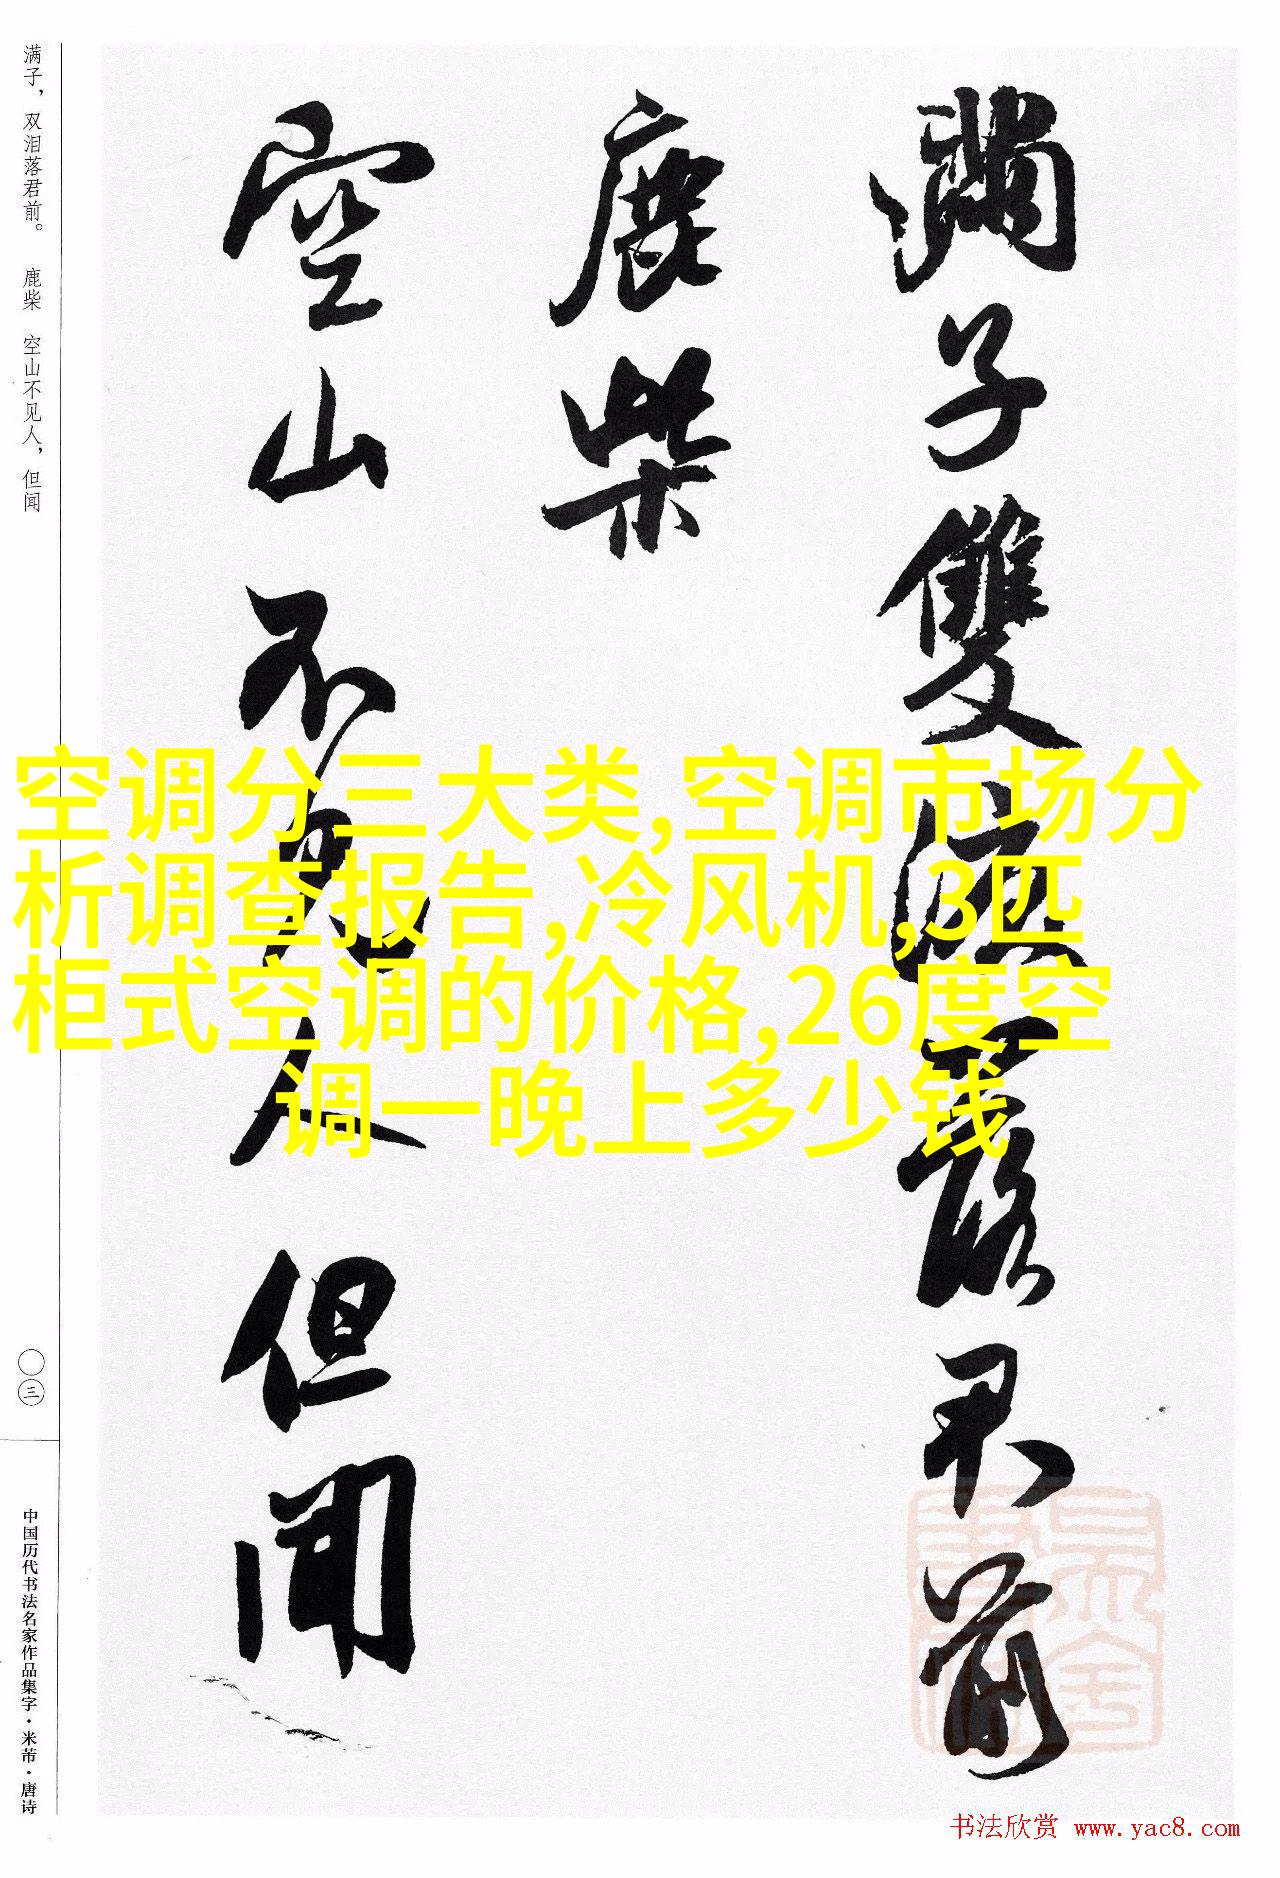 满子，双泪落君前。 鹿柴 空山不见人，但闻
满子雙淚落君前
鹿柴
空山不見人但聞
空调分三大类,空调市场分
析调查报告,冷风机,3匹
柜式空调的价格,26度空
调一晚上多少钱
〇三
中国历代书法名家作品集字·米芾·唐诗
书法欣赏 www.yac8.com